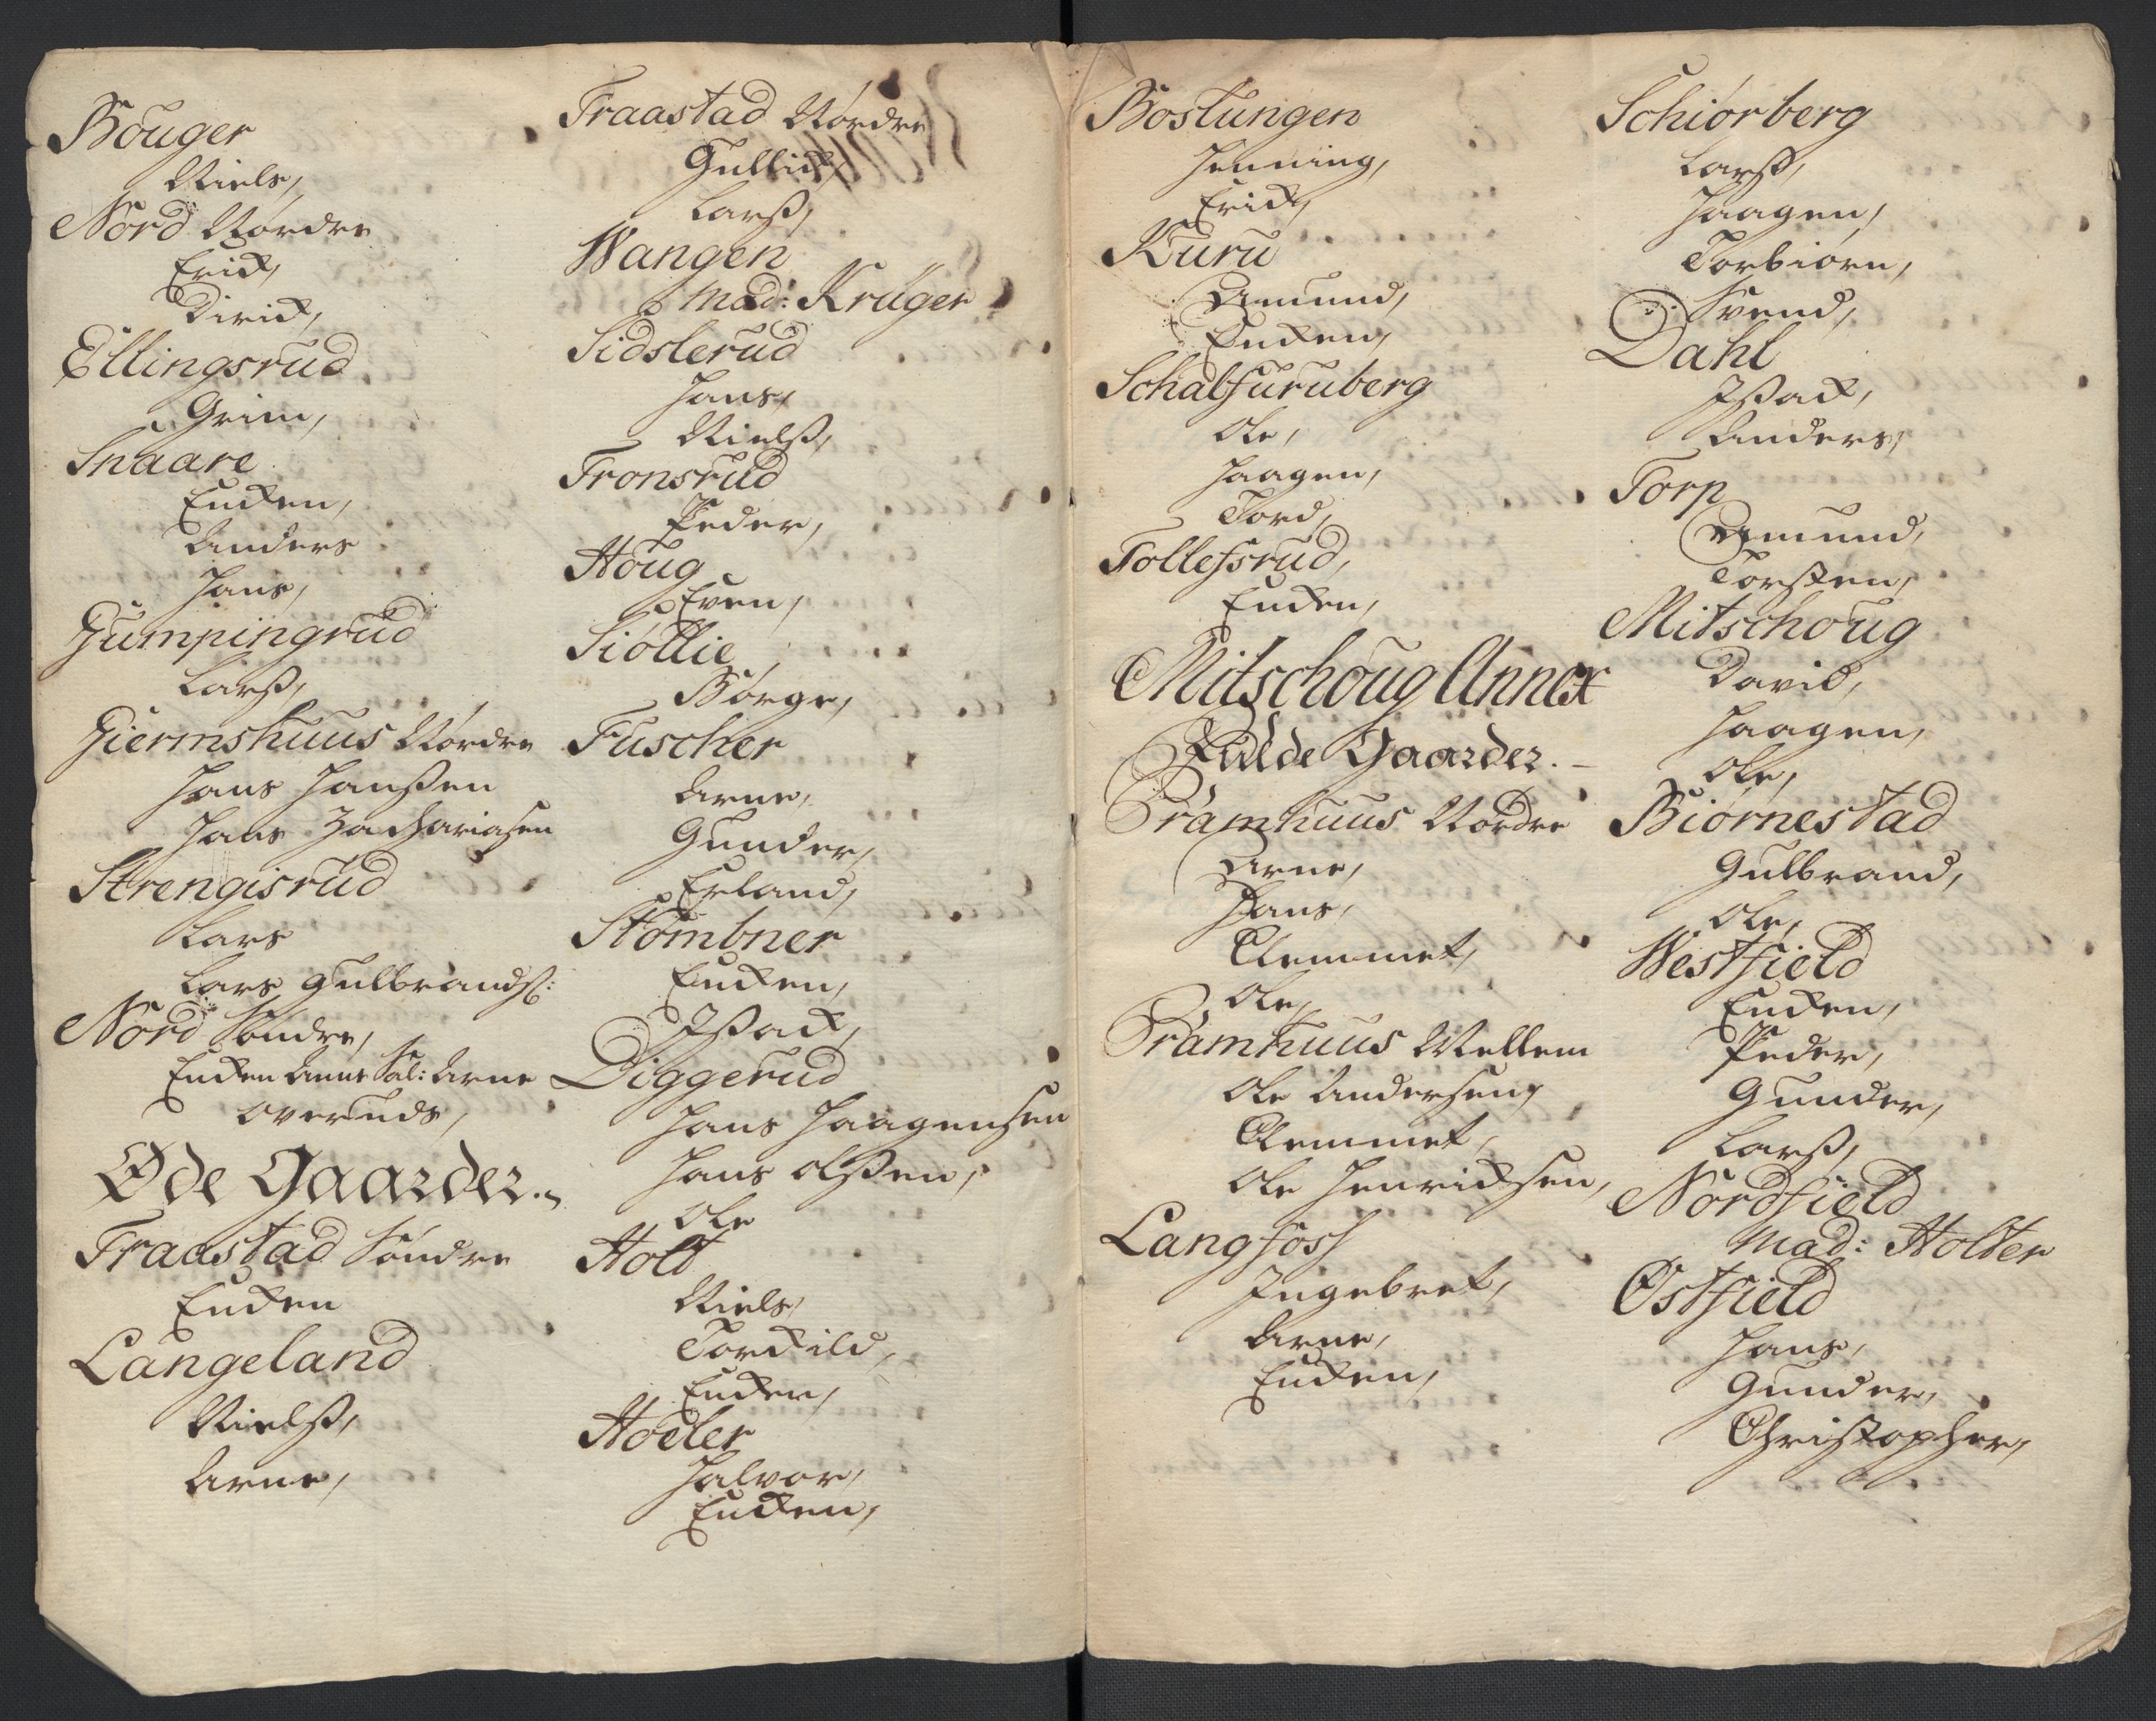 Bouger
Niels,
Nord Nordre
Erick,
Dirick,
Ellingsrud
Grim,
Snaare
Encken,
Anders
Hans,
Gumpingrud
Larß,
Giermshuus Nordre
Hans Hanßen
Hans Zachariasen
Strengisrud
Lars
Lars Gulbrands:
Nord Søndre,
Encken Anne Sal: Arne
Overuds,
Øde Gaarder.
Fraastad Søndre
Encken
Langeland
Nielß,
Arne,
Fraastad Nordre
Gullick,
Larß,
Wangen
Mad: Krüger
Sidslerud
Hans,
Nielß,
Fronsrud
Peder,
Houg
Even,
Siøllie
Børge,
Fuscher
Arne,
Gunder,
Erland,
Stømbner
Encken,
Ißack,
Diggerud
Hans Haagensen
Hans Olßen,
Ole
Holt
Niels,
Torckild,
Encken,
Hoeler
Halvor,
Encken,
Boslungen
Henning,
Erick,
Kuru
Amund,
Encken,
Schalfuruberg
Ole,
Haagen,
Tord,
Tollefsrud,
Encken,
Mitschoug Annex
Fulde Gaarder.
Pramhuus Nordre
Arne,
Hans,
Clemmet,
Ole,
Pramhuus Mellem
Ole Andersen,
Clemmet,
Ole Henricksen,
Langfoss
Ingebret,
Arne,
Encken,
Schiørberg
Larß,
Haagen,
Torbiørn,
Svend,
Dahl
Ißack,
Anders,
Torp
Amund,
Torsten,
Mitschoug
David,
Haagen,
Ole,
Biørnestad
Gulbrand,
Ole,
Westfield
Encken,
Peder,
Gunder,
Larß,
Nordfield
Mad: Holter
Østfield
Hans,
Gunder,
Christopher,